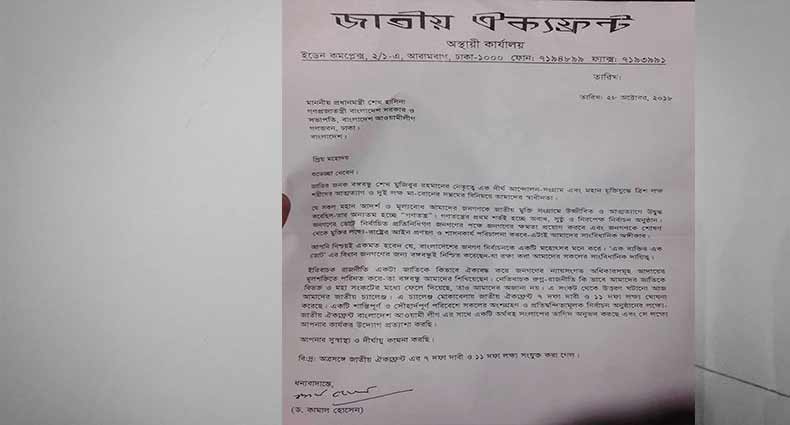 জাতীয় ঐক্যফ্রন্ট
অস্থায়ী কার্যালয়
ইডেন কমপ্লেক্স, ২/১-এ, আরামবাগ, ঢাকা-১০০০ ফোন: ৭১৯৪৮৯৯ ফ্যাক্স: ৭১৯৩৯৯১
তারিখ:
তারিখ: ২৮ অক্টোবর, ২০১৮
মাননীয় প্রধানমন্ত্রী শেখ হাসিনা
গণপ্রজাতন্ত্রী বাংলাদেশ সরকার ও
সভাপতি, বাংলাদেশ আওয়ামীলীগ
গণভবন, ঢাকা।
বাংলাদেশ।
প্রিয় মহোদয়
শুভেচ্ছা নেবেন।
জাতির জনক বঙ্গবন্ধু শেখ মুজিবুর রহমানের নেতৃত্বে এক দীর্ঘ আন্দোলন-সংগ্রাম এবং মহান মুক্তিযুদ্ধে ত্রিশ লক্ষ
শহীদের আত্মত্যাগ ও দুই লক্ষ মা-বোনের সম্ভ্রমের বিনিময়ে আমাদের স্বাধীনতা।
যে সকল মহান আদর্শ ও মূল্যবোধ আমাদের জনগণকে জাতীয় মুক্তি সংগ্রামে উজ্জীবিত ও আত্মত্যাগে উদ্বুদ্ধ
করেছিল-তার অন্যতম হচ্ছে "গণতন্ত্র"। গণতন্ত্রের প্রথম শর্তই হচ্ছে অবাধ, সুষ্ঠু ও নিরপেক্ষ নির্বাচন অনুষ্ঠান।
জনগণের ভোটে নির্বাচিত প্রতিনিধিগণ জনগণের পক্ষে জনগণের ক্ষমতা প্রয়োগ করবে এবং জনগণকে শোষণ
থেকে মুক্তির লক্ষ্যে-রাষ্ট্রের আইন প্রণয়ণ ও শাসনকার্য পরিচালনা করবে-এটাই আমাদের সাংবিধানিক অঙ্গীকার।
আপনি নিশ্চয়ই একমত হবেন যে, বাংলাদেশের জনগণ নির্বাচনকে একটি মহোৎসব মনে করে। 'এক ব্যক্তির এক
ভোট' এর বিধান জনগণের জন্য বঙ্গবন্ধুই নিশ্চিত করেছেন-যা রক্ষা করা আমাদের সকলের সাংবিধানিক দায়িত্ব।
ইতিবাচক রাজনীতি একটা জাতিকে কিভাবে ঐক্যবদ্ধ করে জনগণের ন্যায়সংগত অধিকারসমূহ আদায়ের
মূলশক্তিতে পরিণত করে-তা বঙ্গবন্ধু আমাদের শিখিয়েছেন। নেতিবাচক রুগ্ন-রাজনীতি কি ভাবে আমাদের জাতিকে
বিভক্ত ও মহা সংকটের মধ্যে ফেলে দিয়েছে, তাও আমাদের অজানা নয়। এ সংকট থেকে উত্তরণ ঘটানো আজ
আমাদের জাতীয় চ্যালেঞ্জ। এ চ্যালেঞ্জ মোকাবেলায় জাতীয় ঐক্যফ্রন্ট ৭ দফা দাবী ও ১১ দফা লক্ষ্য ঘোষনা
করেছে। একটি শান্তিপূর্ণ ও সৌহার্দপূর্ণ পরিবেশে সকলের অংশগ্রহণ ও প্রতিদ্বন্দ্বিতামূলক নির্বাচন অনুষ্ঠানের লক্ষ্যে।
জাতীয় ঐক্যফ্রন্ট বাংলাদেশ আওয়ামী লীগ এর সাথে একটি অর্থবহ সংলাপের তাগিদ অনুভব করছে এবং সে লক্ষ্যে
আপনার কার্যকর উদ্যোগ প্রত্যাশা করছি।
আপনার সুস্বাস্থ্য ও দীর্ঘায়ু কামনা করছি।
বি:দ্র: অত্রসঙ্গে জাতীয় ঐক্যফ্রন্ট এর ৭ দফা দাবী ও ১১ দফা লক্ষ্য সংযুক্ত করা গেল।
ধন্যবাদান্তে,
(ড. কামাল হোসেন)